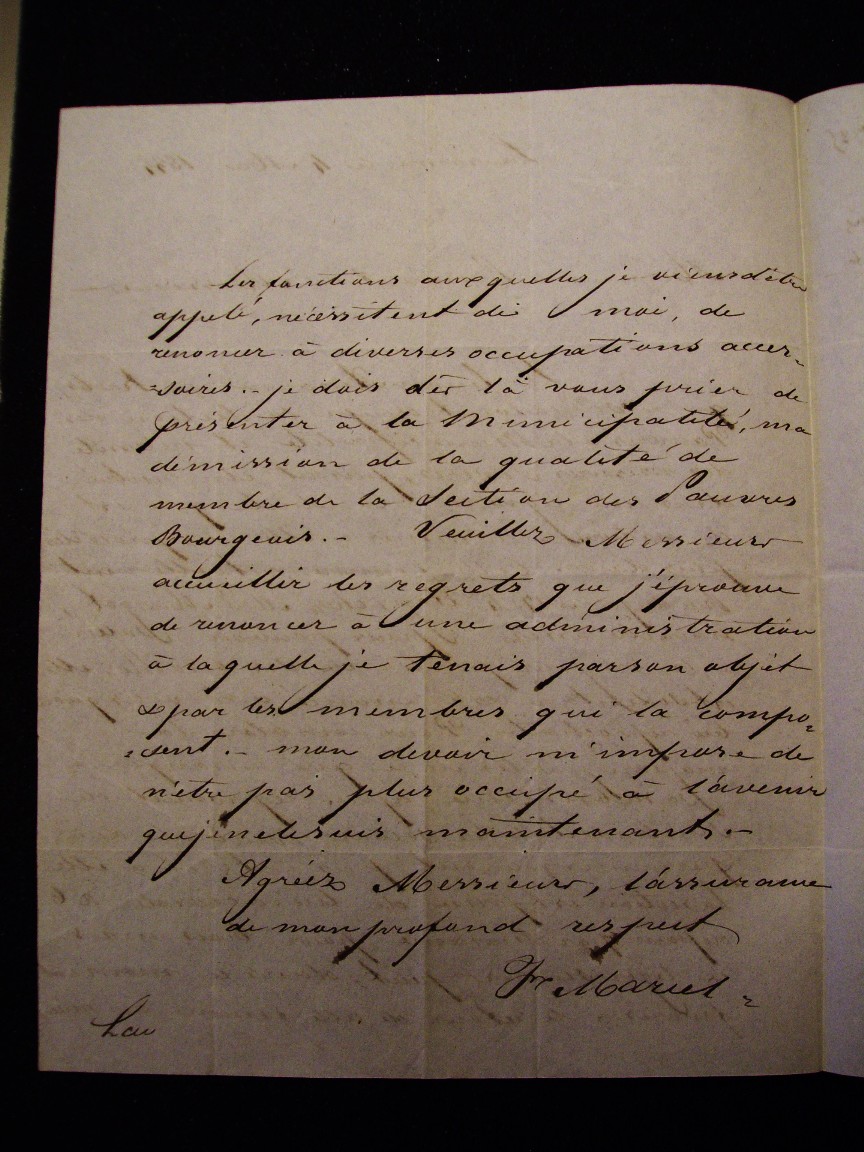 Les fonctions auxquelles je viens d'être
appelé, nécéssitent de moi, de
renoncer à diverses occupations acces-
-soires. - je dois dès là vous prier de
présenter à la Municipalité, ma
démission de la qualité de
membre de la Section des Pauvres
Bourgeois. - Veuillez Messieurs
accueillir les regrets que j'éprouve
de renoncer à une administration
à laquelle je tenais par son objet
& par les membres qui la compo-
-sent. - mon devoir m'impose de
n'être pas plus occupé à l'avenir
que je ne le suis maintenant. -
Agréez Messieurs, l'assurance
de mon profond respect
Fr Marcel